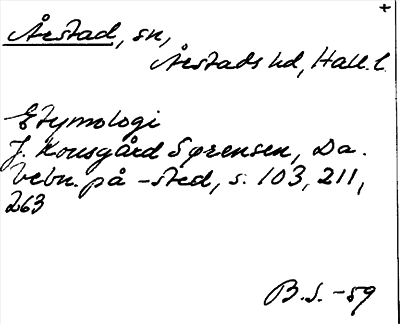 +
Årstad, sn,
Årstads hd, Hall. l.
Etymologi
J. Kousgård Sørensen, Da.
bebn. på -sted, s. 103, 211,
263
B. S. -59